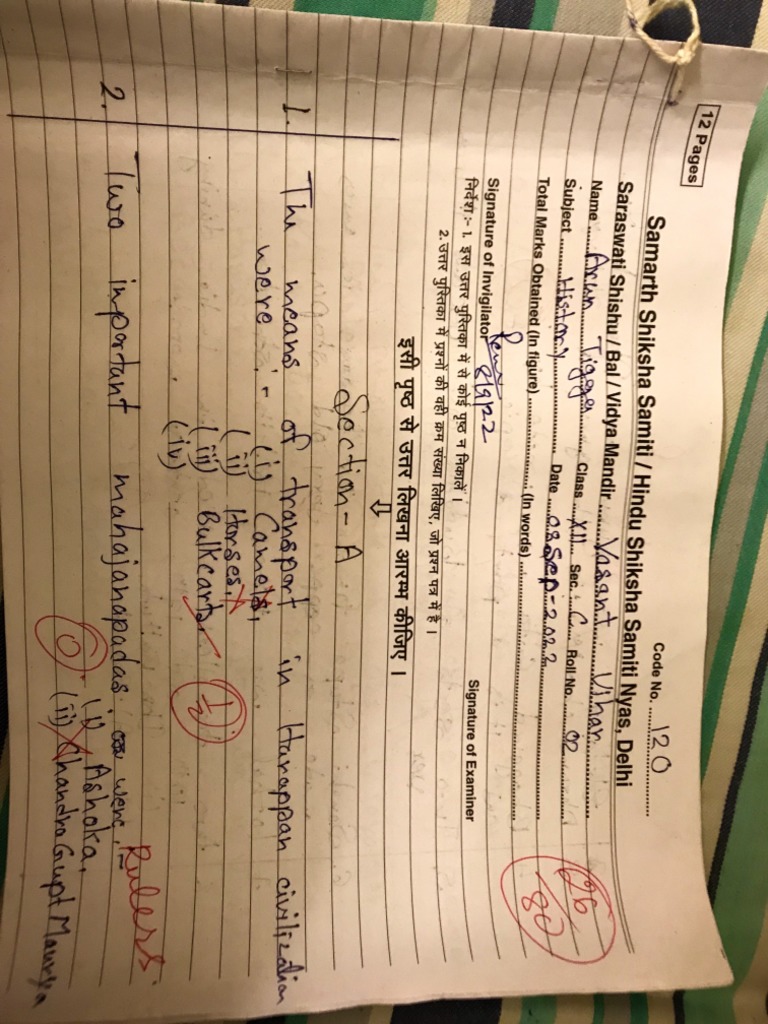 12 Pages
Code No. 120
Samarth Shiksha Samiti / Hindu Shiksha Samiti Nyas, Delhi
Saraswati Shishu / Bal / Vidya Mandir Vasant Vihar
Name Arun Tigga Class XII Sec. C Roll No. 02
Subject History Date 08 Sep-2022
Total Marks Obtained (In figure) (In words)
26/80
Signature of Invigilator 8/9/22 Signature of Examiner
निर्देश :- 1. इस उत्तर पुस्तिका में से कोई पृष्ठ न निकालें ।
2. उत्तर पुस्तिका में प्रश्नों की वही क्रम संख्या लिखिए, जो प्रश्न पत्र में है ।
इसी पृष्ठ से उत्तर लिखना आरम्भ कीजिए ।
⇓
Section-A
1. The means of transport in Harappan civilization
were :- (i) Camels,
(ii) Horses,
(iii) Bulkcarts,
(iv)
1/2
2. Two inportant mahajanapadas were :-
Rulers
(i) Ashoka,
(ii) Chandra Grupt Maurya
0